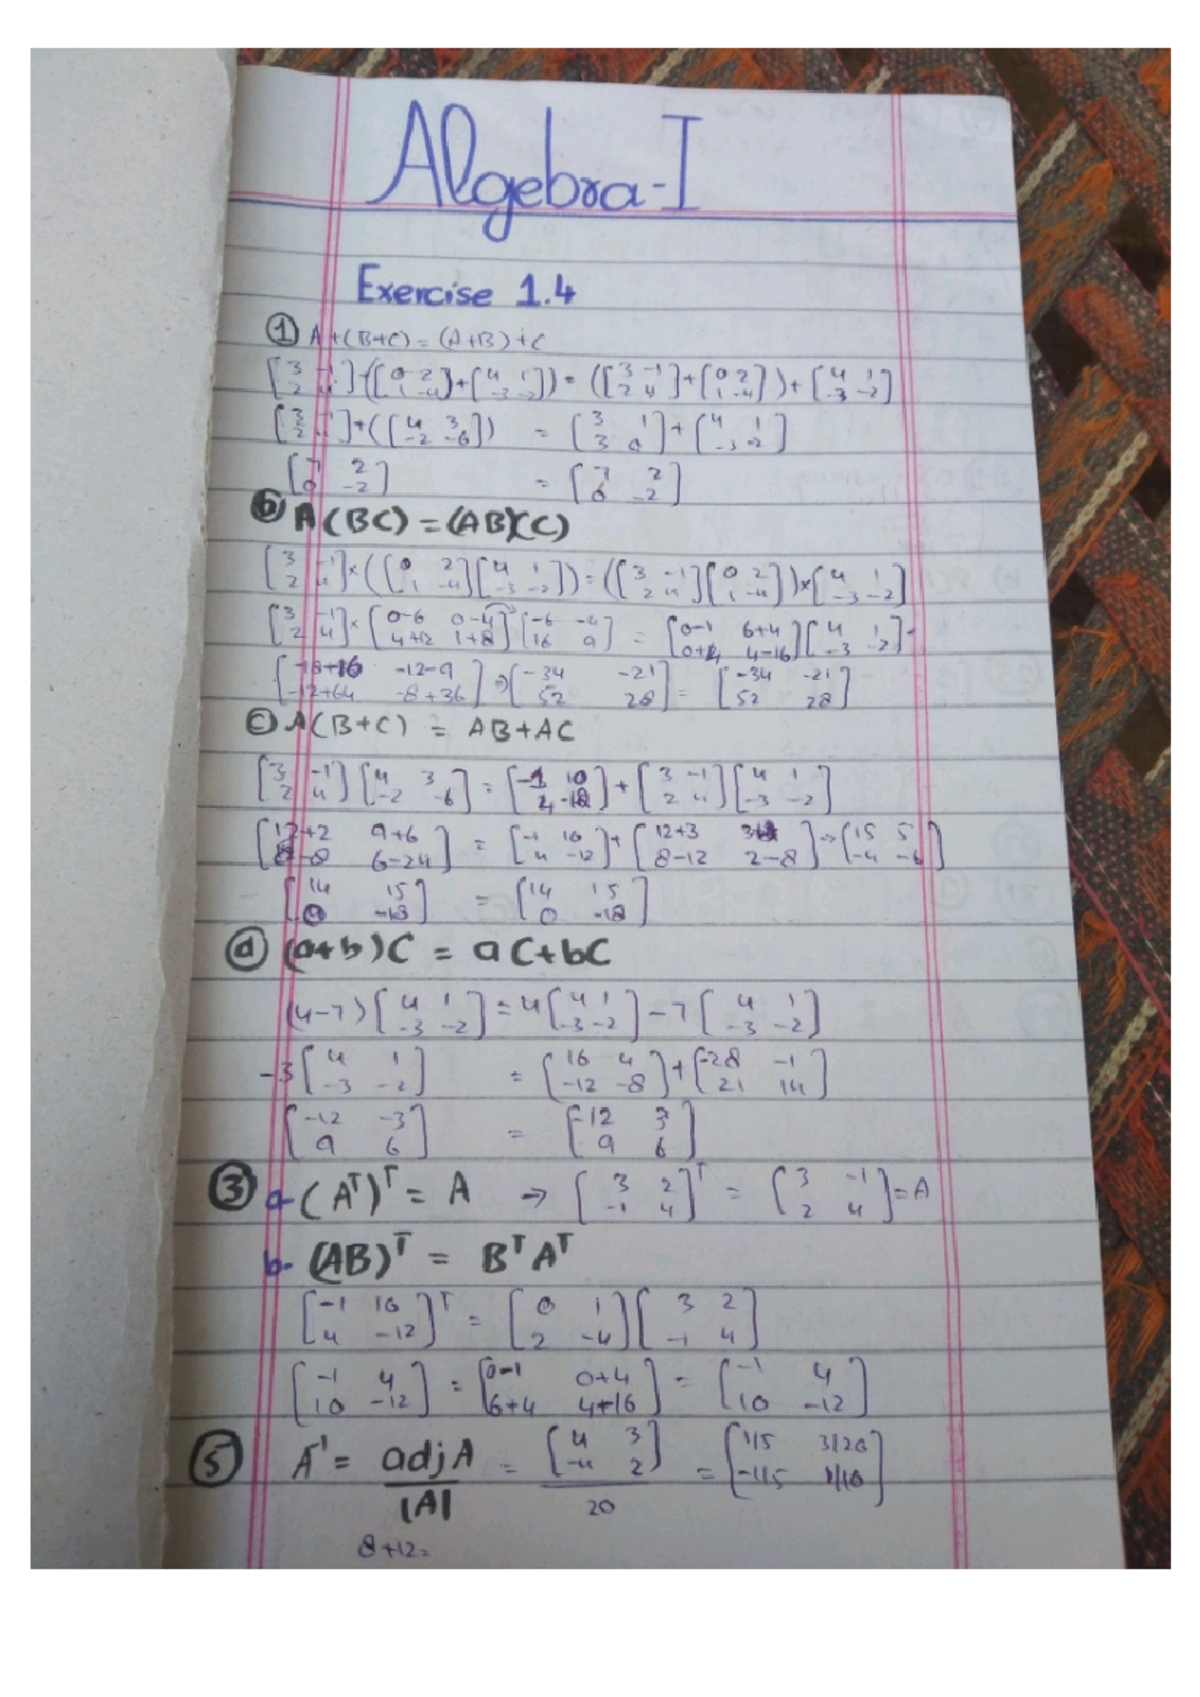 Algebra-I
Exercise 1.4
① A+(B+C) = (A+B)+C
[3 -1; 2 4] + ([0 2; 1 -4] + [4 1; -3 -2]) = ([3 -1; 2 4] + [0 2; 1 -4]) + [4 1; -3 -2]
[3 -1; 2 4] + ([4 3; -2 -6]) = [3 1; 3 0] + [4 1; -3 -2]
[7 2; 0 -2] = [7 2; 0 -2]
ⓑ A(BC) = (AB)(C)
[3 -1; 2 4] × ([0 2; 1 -4][4 1; -3 -2]) = ([3 -1; 2 4][0 2; 1 -4]) × [4 1; -3 -2]
[3 -1; 2 4] × [0-6 0-4; 4+12 1+8] [-6 -4; 16 9] = [0-1 6+4; 0+4 4-16][4 1; -3 -2]
[-18+16 -12-9; -12+64 -8+36] ⇒ [-34 -21; 52 28] = [-34 -21; 52 28]
ⓒ A(B+C) = AB+AC
[3 -1; 2 4][4 3; -2 -6] = [-1 10; 4 -12] + [3 -1; 2 4][4 1; -3 -2]
[12+2 9+6; 8-8 6-24] = [-1 10; 4 -12] + [12+3 ; 8-12 2-8] → [15 5; -4 -6]
[14 15; 0 -18] = [14 15; 0 -18]
ⓓ (a+b)C = aC+bC
(4-7)[4 1; -3 -2] = 4[4 1; -3 -2] -7[4 1; -3 -2]
-3[4 1; -3 -2] = [16 4; -12 -8] + [-28 -1; 21 14]
[-12 -3; 9 6] = [-12 3; 9 6]
③ a- (Aᵀ)ᵀ = A → [3 2; -1 4]ᵀ = [3 -1; 2 4] = A
b- (AB)ᵀ = BᵀAᵀ
[-1 10; 4 -12]ᵀ = [0 1; 2 -4][3 2; -1 4]
[-1 4; 10 -12] = [0-1 0+4; 6+4 4+16] = [-1 4; 10 -12]
⑤ A⁻¹ = adjA/|A| = [4 3; -4 2]/20 = [1/5 3/20; -1/5 1/10]
8+12=